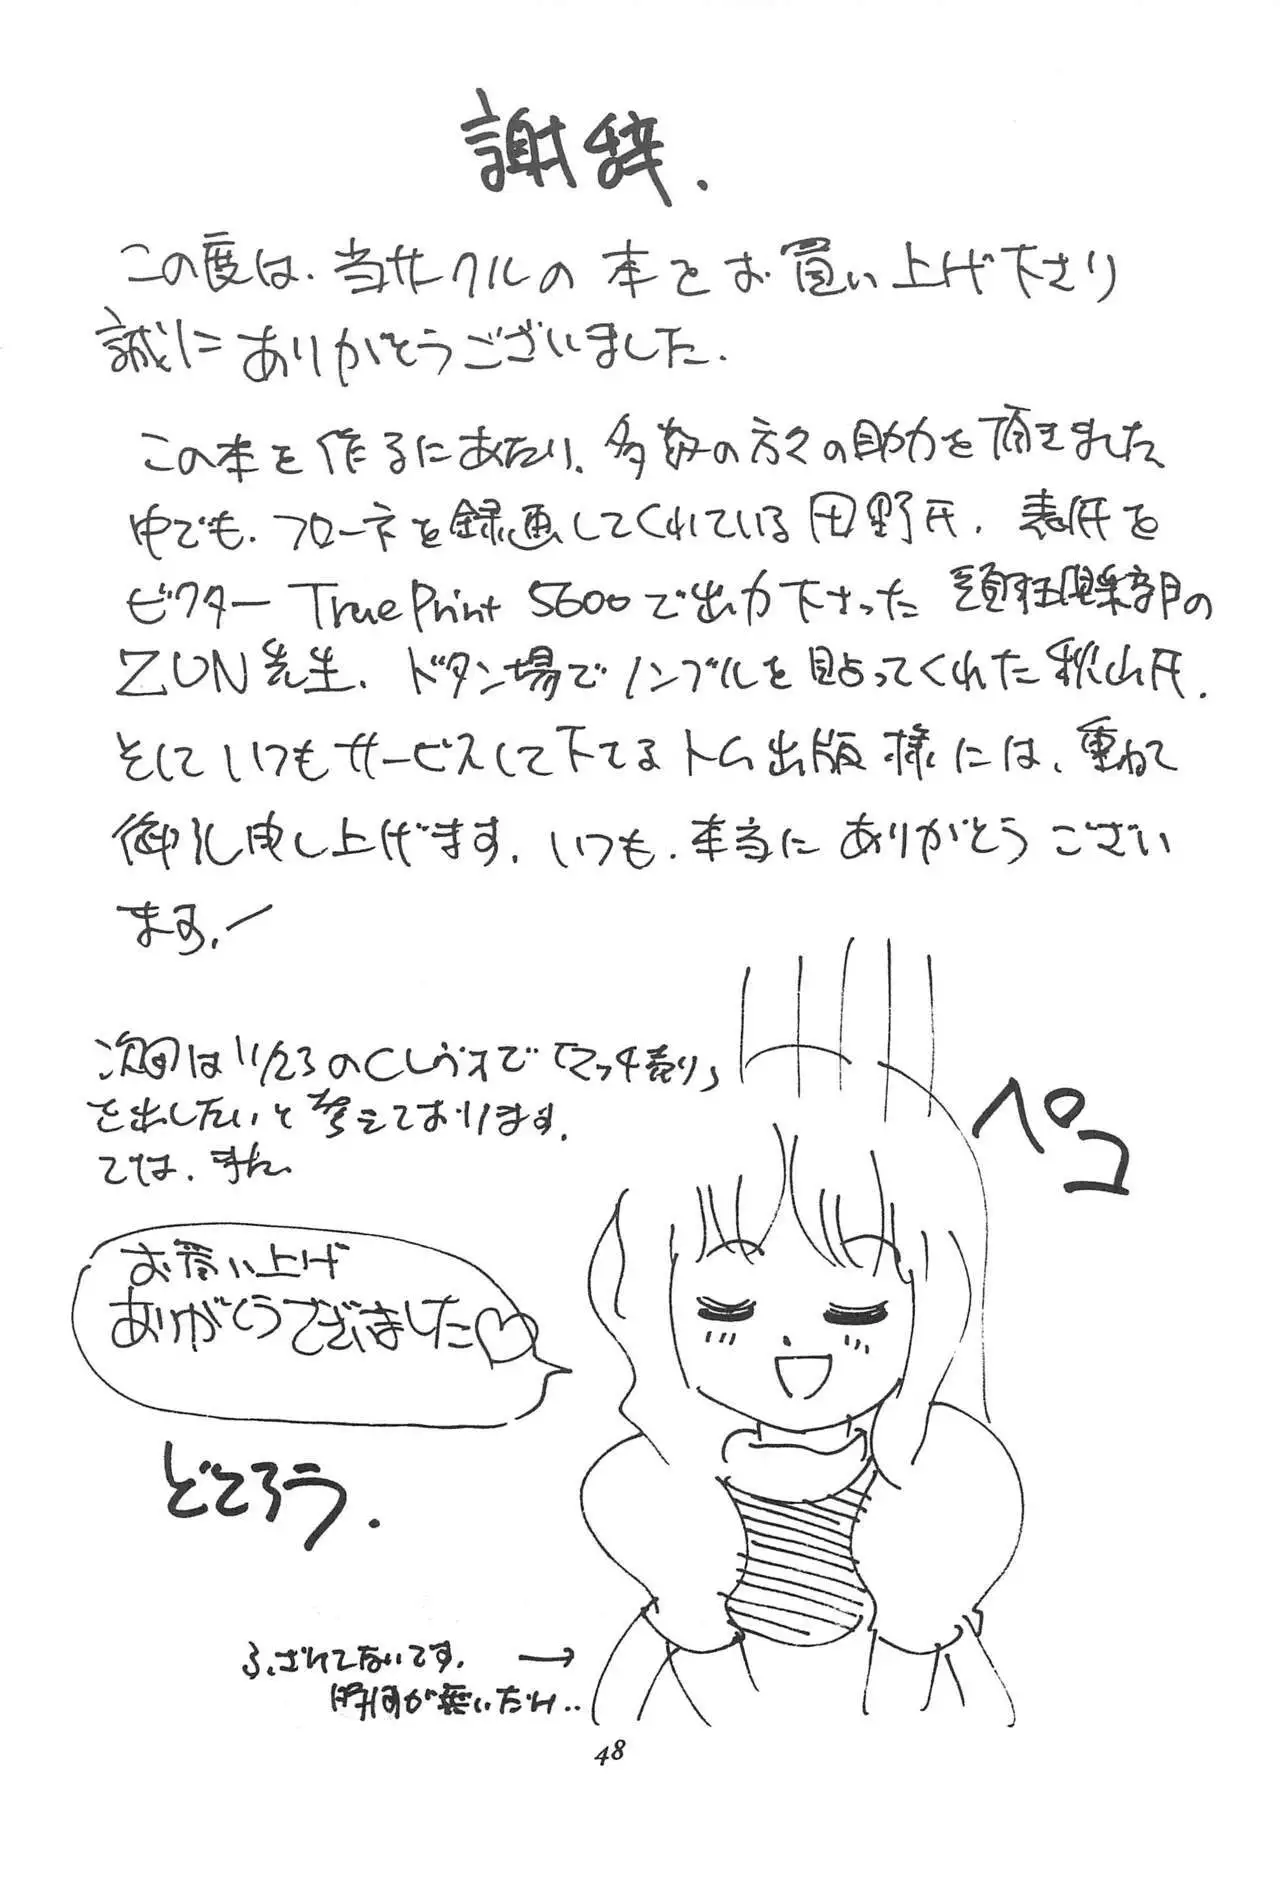 謝辞.
この度は、当サークルの本をお買い上げ下さり
誠にありがとうございました.
この本を作るにあたり、多数の方々の助力を頂きました
中でも、フローネを録画してくれている田野氏、表紙を
ビクター True Print 5600で出力下さった
ZUN先生、ドタン場でノンブルを貼ってくれた秋山氏.
そしていつもサービスして下てるトム出版様には、重ねて
御礼申し上げます. いつも、本当にありがとうござい
ます.
次回は11/23のCレヴォで「マッチ売り」
を出したいと考えております.
では、また
ペコ
お買い上げ
ありがとうございました♡
どころう.
ふざけてないです. →
時間が無いだけ..
48